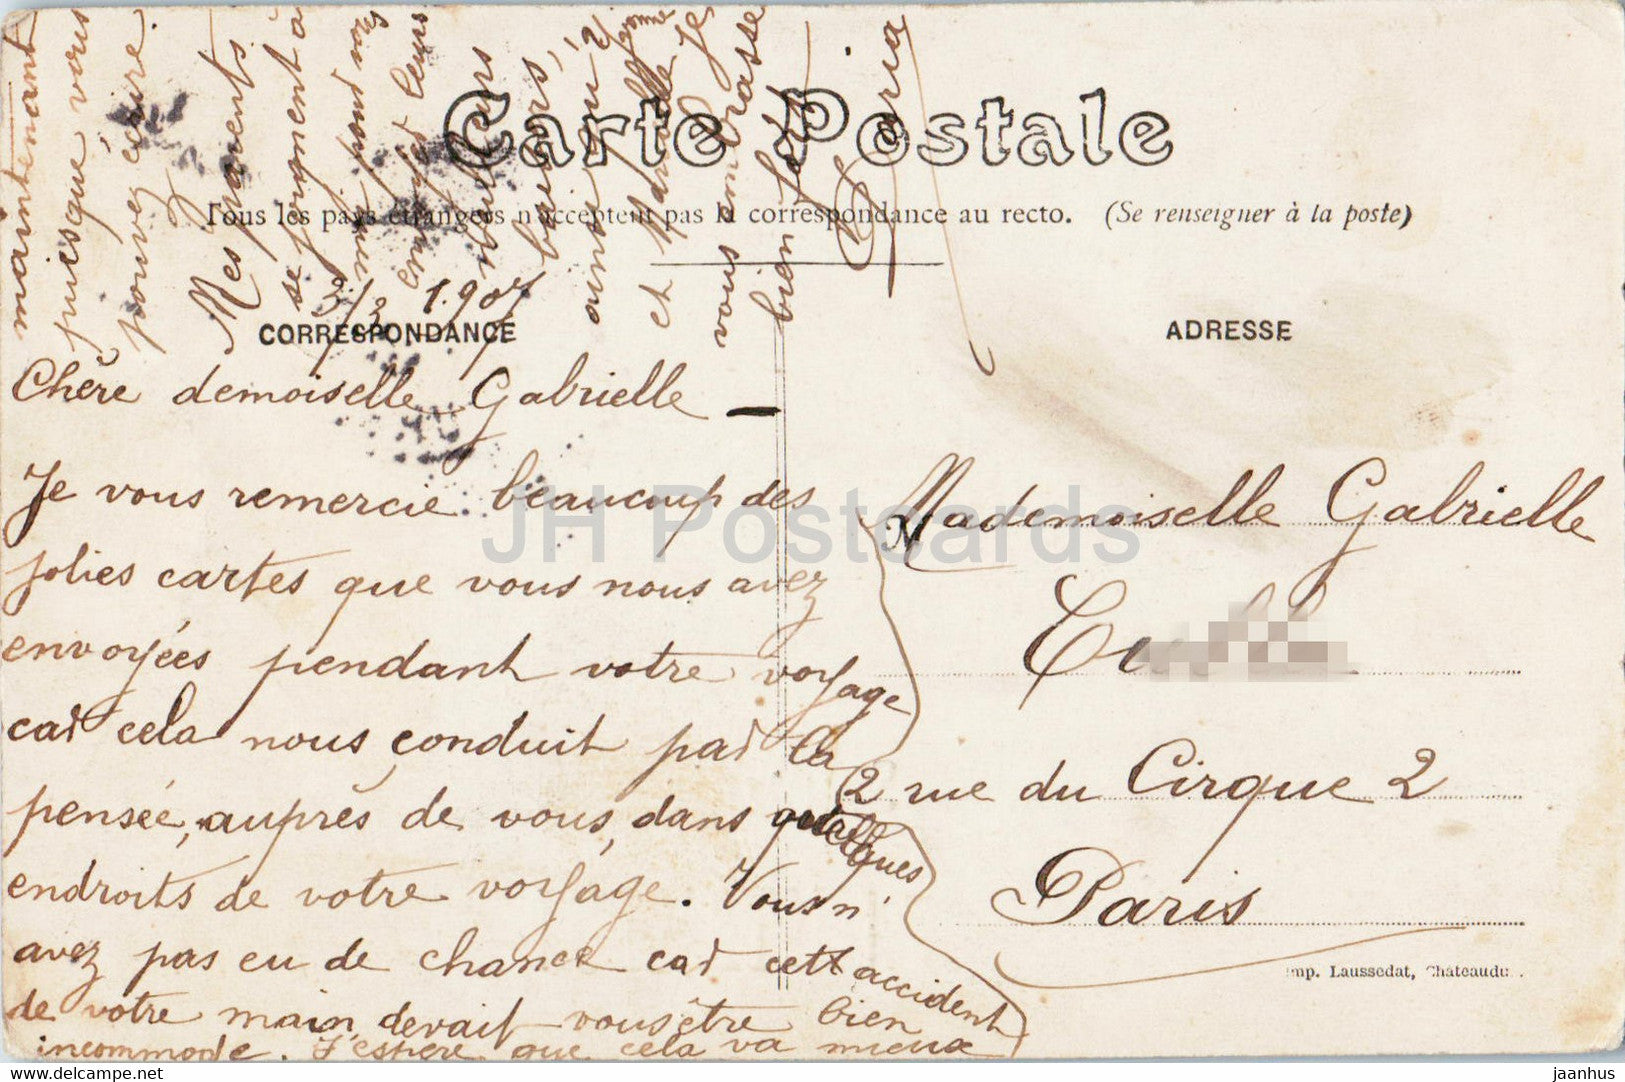 Carte Postale
Tous les pays étrangers n'acceptent pas la correspondance au recto. (Se renseigner à la poste)
CORRESPONDANCE
ADRESSE
3/3 1907
Chère demoiselle Gabrielle —
Je vous remercie beaucoup des
jolies cartes que vous nous avez
envoyées pendant votre voyage
car cela nous conduit par la
pensée, auprès de vous, dans quelques
endroits de votre voyage. Vous n'
avez pas eu de chance car cett accident
de votre main, devait vous être bien
incommode. J'espère que cela va mieux
maintenant
puisque vous
pouvez écrire.
Mes parents
se joignent à
moi pour
leurs
meilleurs
baisers,
ainsi qu'à
et Marcelle Je
vous embrasse
bien fort
Maria
Mademoiselle Gabrielle
2 rue du Cirque 2
Paris
Imp. Laussedat, Châteaudun.
JH Postcards
hip-adult.net
jaanhus